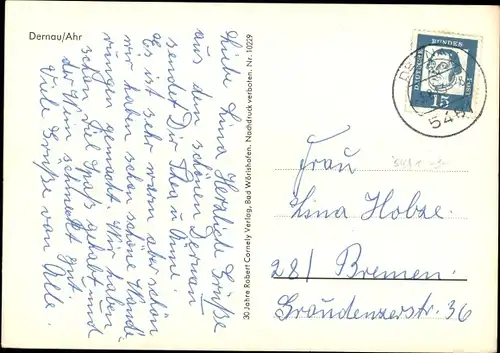 Dernau/Ahr
Liebe Lina Herzliche Grüße
aus dem schönen Dernau
sendet Dir Thea u Anni.
Es ist sehr warm aber schön
wir haben schon schöne Wande-
rungen gemacht. Wir haben
schon viel Spaß gehabt und
der Wein schmeckt gut.
Viele Grüße von Alle.
30 Jahre Robert Cornely Verlag, Bad Wörishofen. Nachdruck verboten. Nr. 10229
DEUTSCHE
BUNDES
POST
15
Frau
Lina Holze.
28/ Bremen.
Graudenzerstr. 36